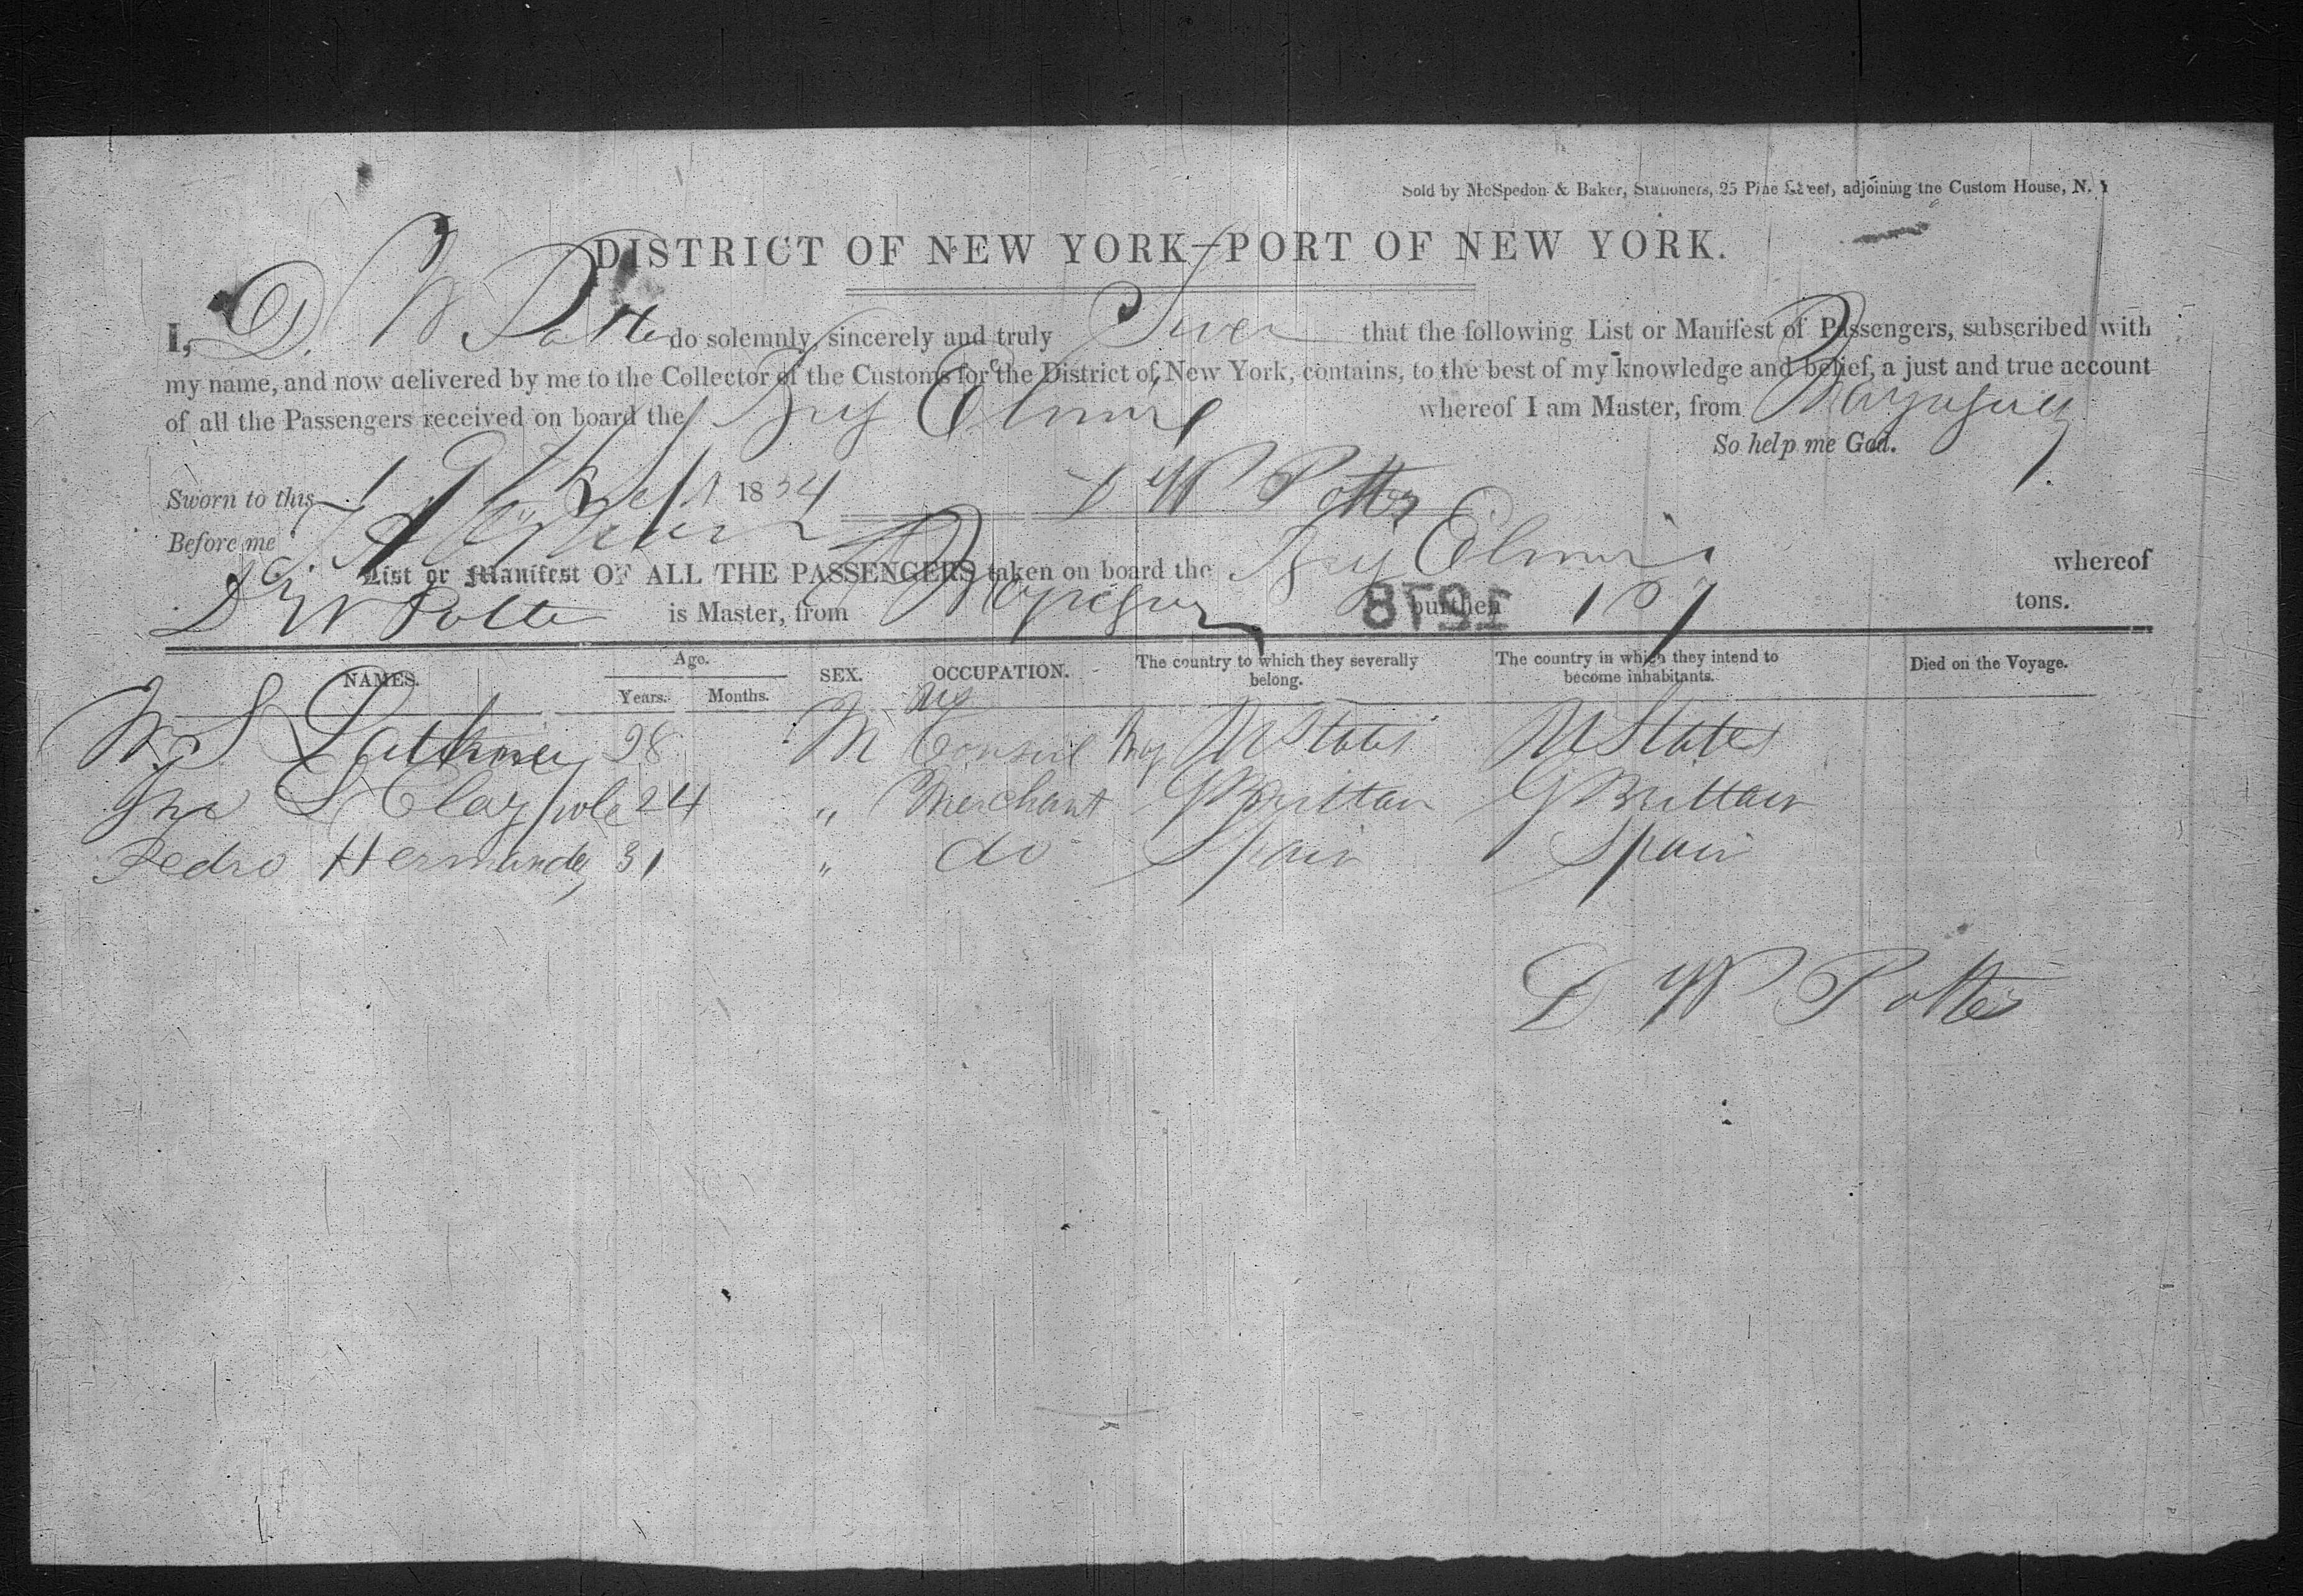 Sold by McSpedon & Baker, Stationers, 25 Pine Street, adjoining the Custom House, N. Y
DISTRICT OF NEW YORK—PORT OF NEW YORK.
I, D. W Potter do solemnly, sincerely and truly Swear that the following List or Manifest of Passengers, subscribed with
my name, and now delivered by me to the Collector of the Customs for the District of New York, contains, to the best of my knowledge and belief, a just and true account
of all the Passengers received on board the Brig whereof I am Master, from
So help me God.
Sworn to this 19th Sept 1854 D W Potter
Before me
List or Manifest OF ALL THE PASSENGERS taken on board the Brig whereof
D W Potter is Master, from burthen 167 tons.
1978
NAMES. Age. Years. Months. SEX. OCCUPATION. The country to which they severally belong. The country in which they intend to become inhabitants. Died on the Voyage.
W. S 28 M US Consul U States U States
Jno S Claypole 24 " Merchant G Brittain G Brittain
Pedro Hernandez 31 " do Spain Spain
D W Potter